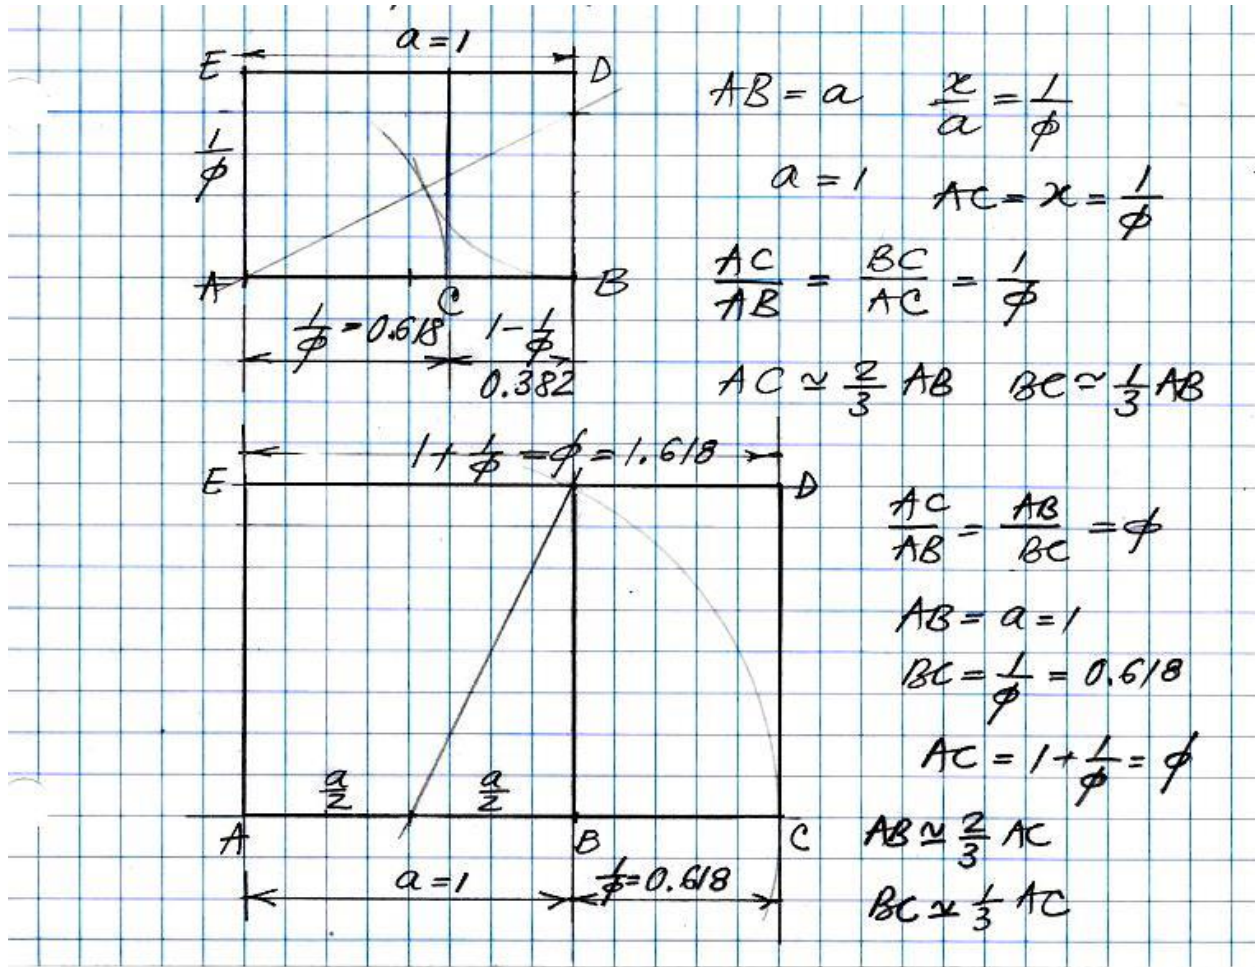 a = 1
E D
1/ϕ
A C B
1/ϕ = 0.618 1 - 1/ϕ
0.382
AB = a x/a = 1/ϕ
a = 1 AC = x = 1/ϕ
AC/AB = BC/AC = 1/ϕ
AC ≃ 2/3 AB BC ≃ 1/3 AB
1 + 1/ϕ = ϕ = 1.618
E D
a/2 a/2
A B C
a = 1 1/ϕ = 0.618
AC/AB = AB/BC = ϕ
AB = a = 1
BC = 1/ϕ = 0.618
AC = 1 + 1/ϕ = ϕ
AB ≃ 2/3 AC
BC ≃ 1/3 AC